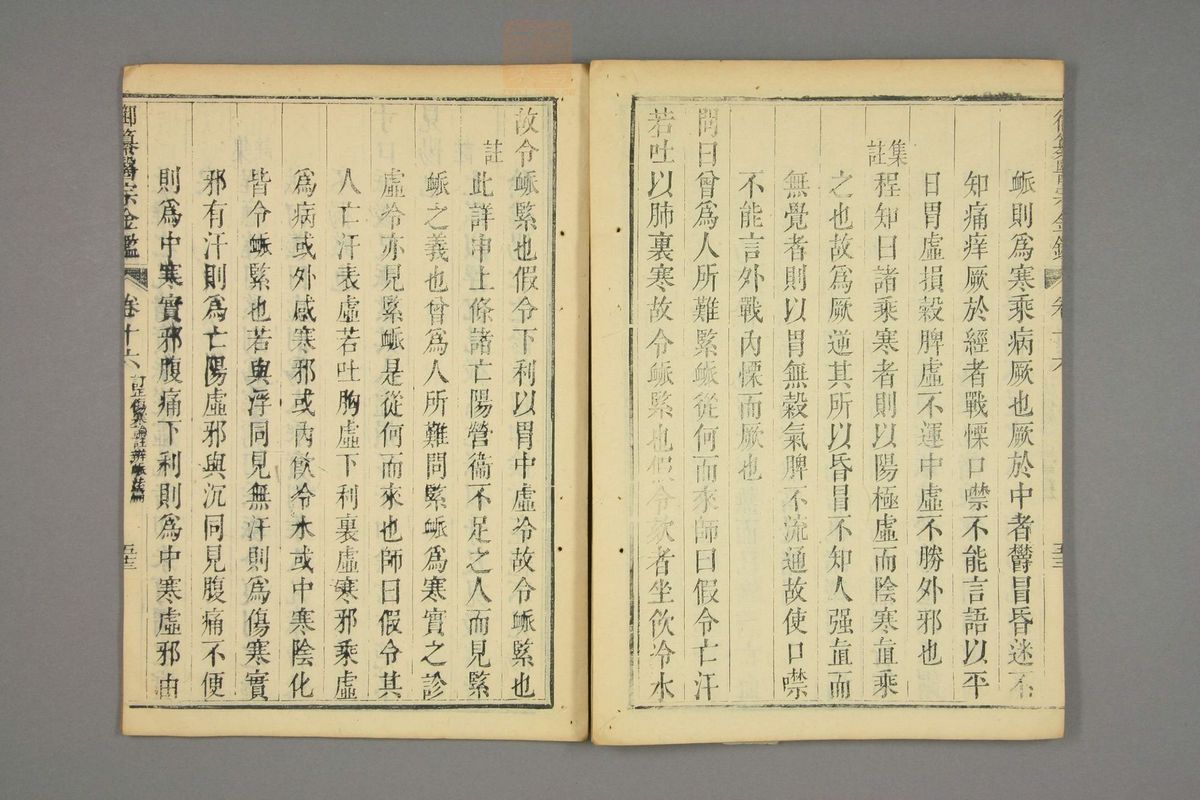 脈則爲寒乘病厥也厥於中者欝冒昏迷不
知痛痒厥於經者戰慄口噤不能言語以平
日胃虛損穀脾虛不運中虛不勝外邪也
集註程知曰諸乘寒者則以陽極虛而陰寒直乘
之也故爲厥逆其所以昏冒不知人强直而
無覺者則以胃無穀氣脾不流通故使口噤
不能言外戰內慄而厥也
問曰曾爲人所難緊脈從何而來師曰假令亡汗
若吐以肺裏寒故令脈緊也假令欬者坐飲冷水
故令脈緊也假令下利以胃中虛冷故令脈緊也
註此詳申上條諸亡陽營衞不足之人而見緊
脈之義也曾爲人所難問緊脈爲寒實之診
虛冷亦見緊脈是從何而來也師曰假令其
人亡汗表虛若吐胸虛下利裏虛寒邪乘虛
爲病或外感寒邪或內飲冷水或中寒陰化
皆令脈緊也若與浮同見無汗則爲傷寒實
邪有汗則爲亡陽虛邪與沉同見腹痛不便
則爲中寒實邪腹痛下利則爲中寒虛邪由
御纂醫宗金鑑 卷十六 訂正傷寒論註辨脈法篇 五三